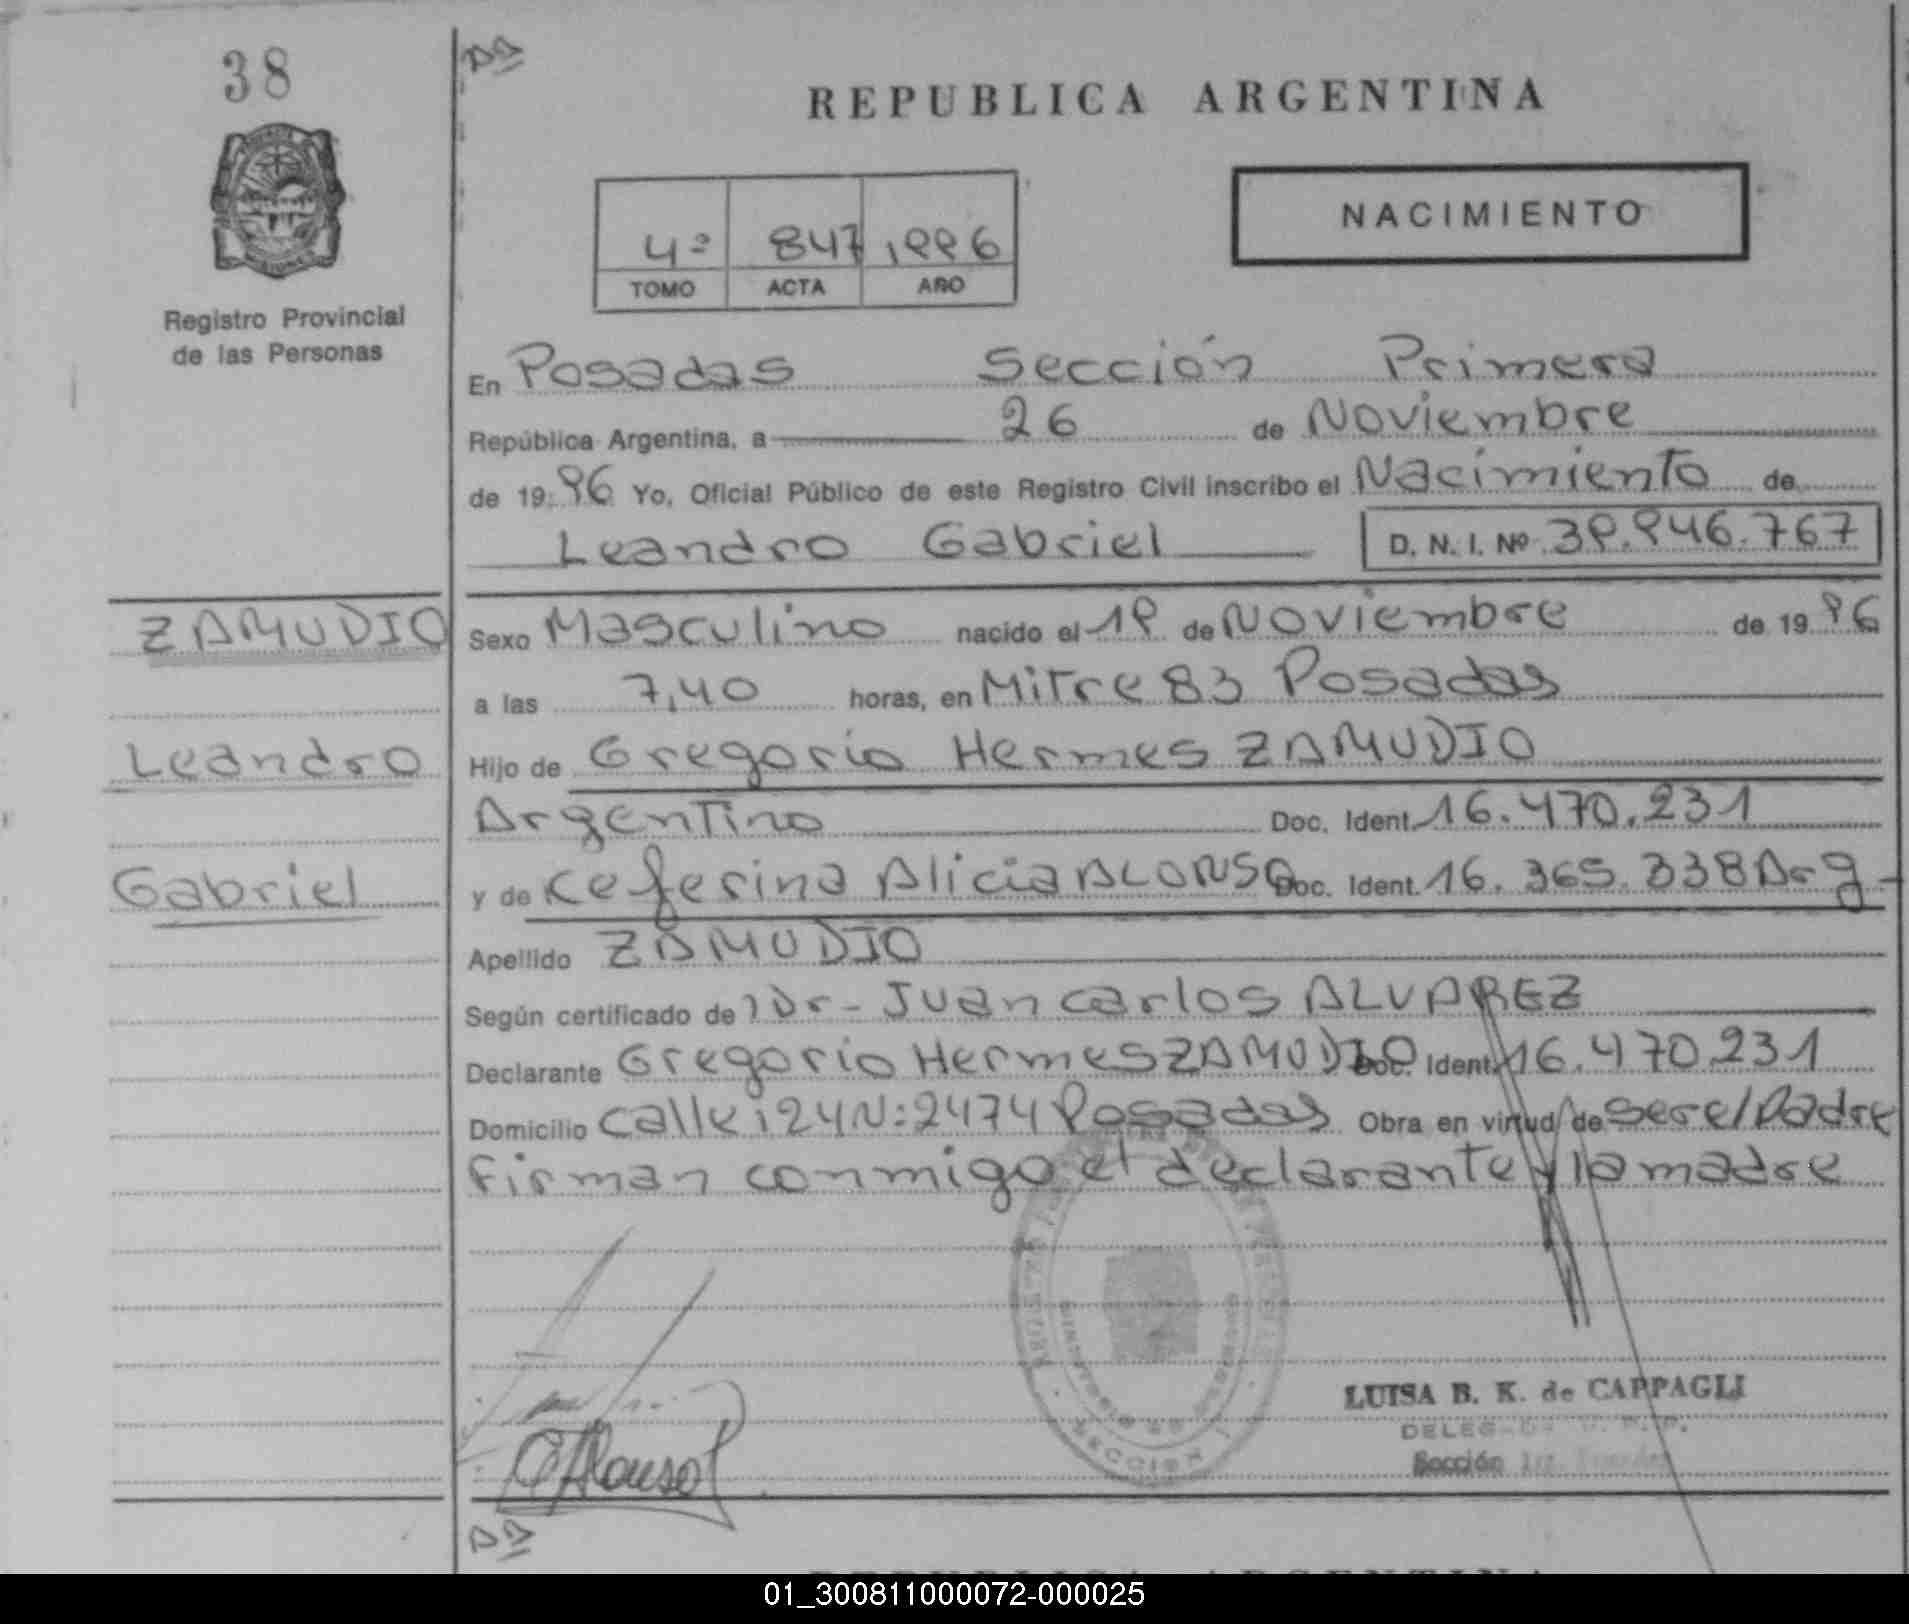 38
REPUBLICA ARGENTINA
NACIMIENTO
4º 847 1996
TOMO ACTA AÑO
Registro Provincial
de las Personas
En Posadas Sección Primera
República Argentina, a 26 de Noviembre
de 1996 Yo, Oficial Público de este Registro Civil inscribo el Nacimiento de
Leandro Gabriel D. N. I. Nº 39.946.767
ZAMUDIO
Leandro
Gabriel
Sexo Masculino nacido el 19 de Noviembre de 1996
a las 7,40 horas, en Mitre 83 Posadas
Hijo de Gregorio Hermes ZAMUDIO
Argentino Doc. Ident. 16.470.231
y de Ceferina Alicia ALONSO Doc. Ident. 16.365.338 Arg
Apellido ZAMUDIO
Según certificado de Dr- Juan Carlos ALVAREZ
Declarante Gregorio Hermes ZAMUDIO Doc. Ident. 16.470.231
Domicilio Calle 124 N: 2474 Posadas Obra en virtud de ser el Padre
Firman conmigo el declarante y la madre
LUISA B. K. de CAPPAGLI
Sección
SECCION 1
01_300811000072-000025